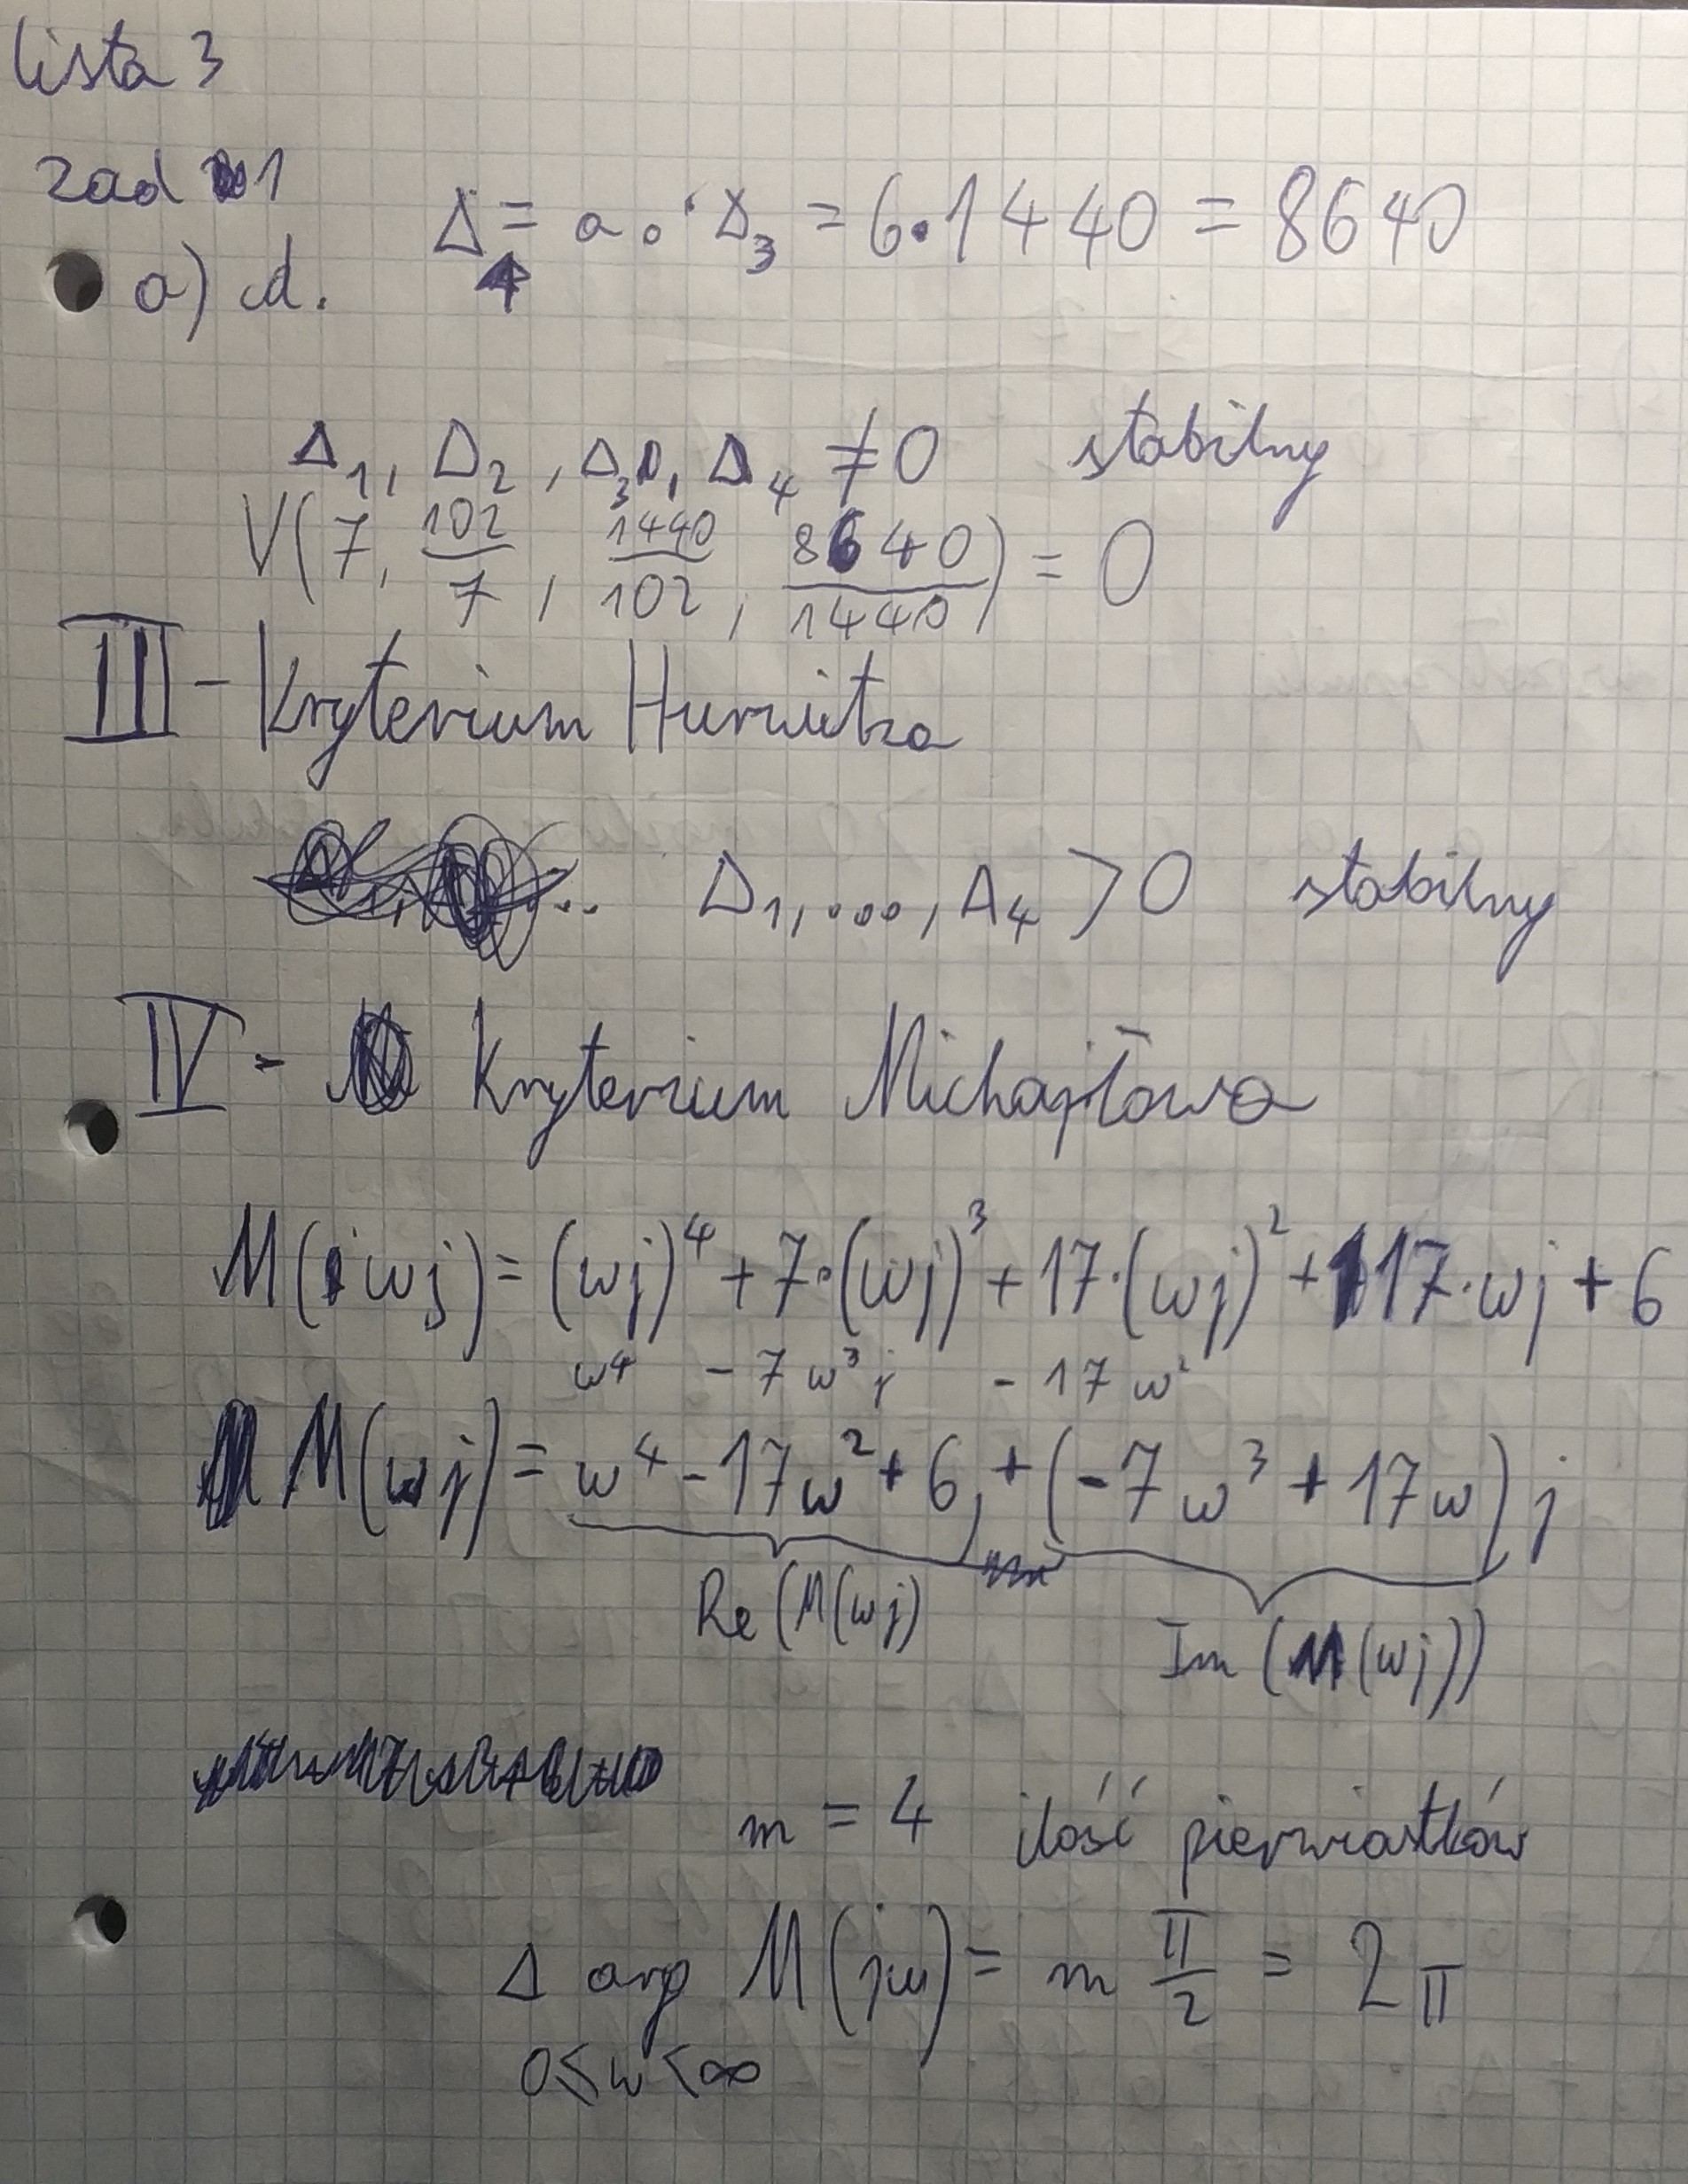 lista 3
zad 1
Δ₄ = a₀ · Δ₃ = 6 · 1440 = 8640
a) cd.
Δ₁, Δ₂, Δ₃, Δ₄ ≠ 0 stabilny
V(7, 102/7, 1440/102, 8640/1440) = 0
III - Kryterium Hurwitza
Δ₁, ..., Δ₄ > 0 stabilny
IV - Kryterium Michajłowa
M(ωj) = (ωj)⁴ + 7·(ωj)³ + 17·(ωj)² + 17·ωj + 6
ω⁴ - 7ω³j - 17ω²
M(ωj) = ω⁴ - 17ω² + 6 + (-7ω³ + 17ω)j
Re(M(ωj)
Im(M(ωj))
m = 4 ilość pierwiastków
Δ arg M(jω) = m π/2 = 2π
0 ≤ ω < ∞